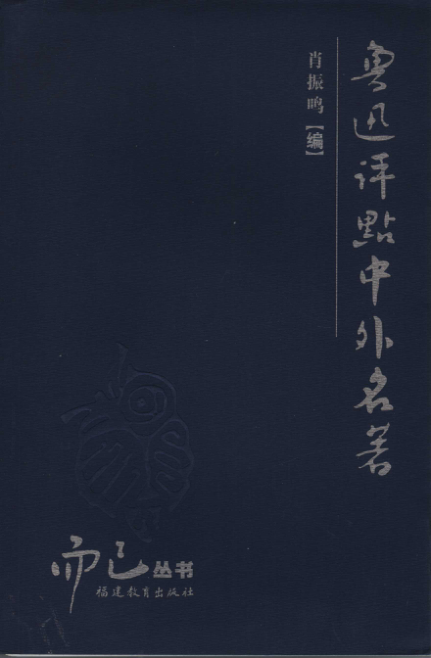 鲁迅评點中外名著
肖振鸣【编】
而已丛书
福建教育出版社